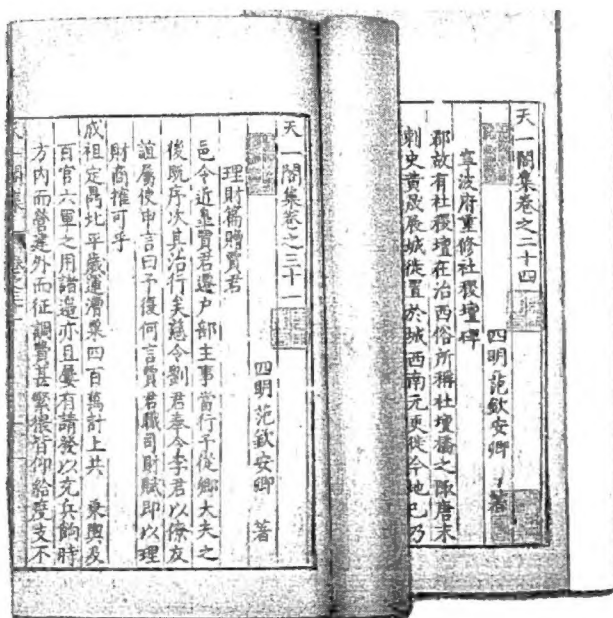 天一閣集卷之二十四
四明范欽安卿著
寧波府重修社稷壇碑
郡故有社稷壇在治西俗所稱社壇橋之陬唐末
刺史黃晟展城徙置於城西南元更徙今地已乃
天一閣集卷之三十一
四明范欽安卿著
理財篇贈賈君
邑令近臯賈君遷户部主事當行予從鄉大夫之
後既序次其治行矣慈令劉君奉令李君以僚友
誼屬使申言曰予復何言賈君職司財賦即以理
財商搉可乎
成祖定鼎北平歲運漕粟四百萬計上共 乘輿及
百官六軍之用諸邊亦且屢有請發以充兵餉時
方內而營建外而征調費甚繁猥皆仰給度支不